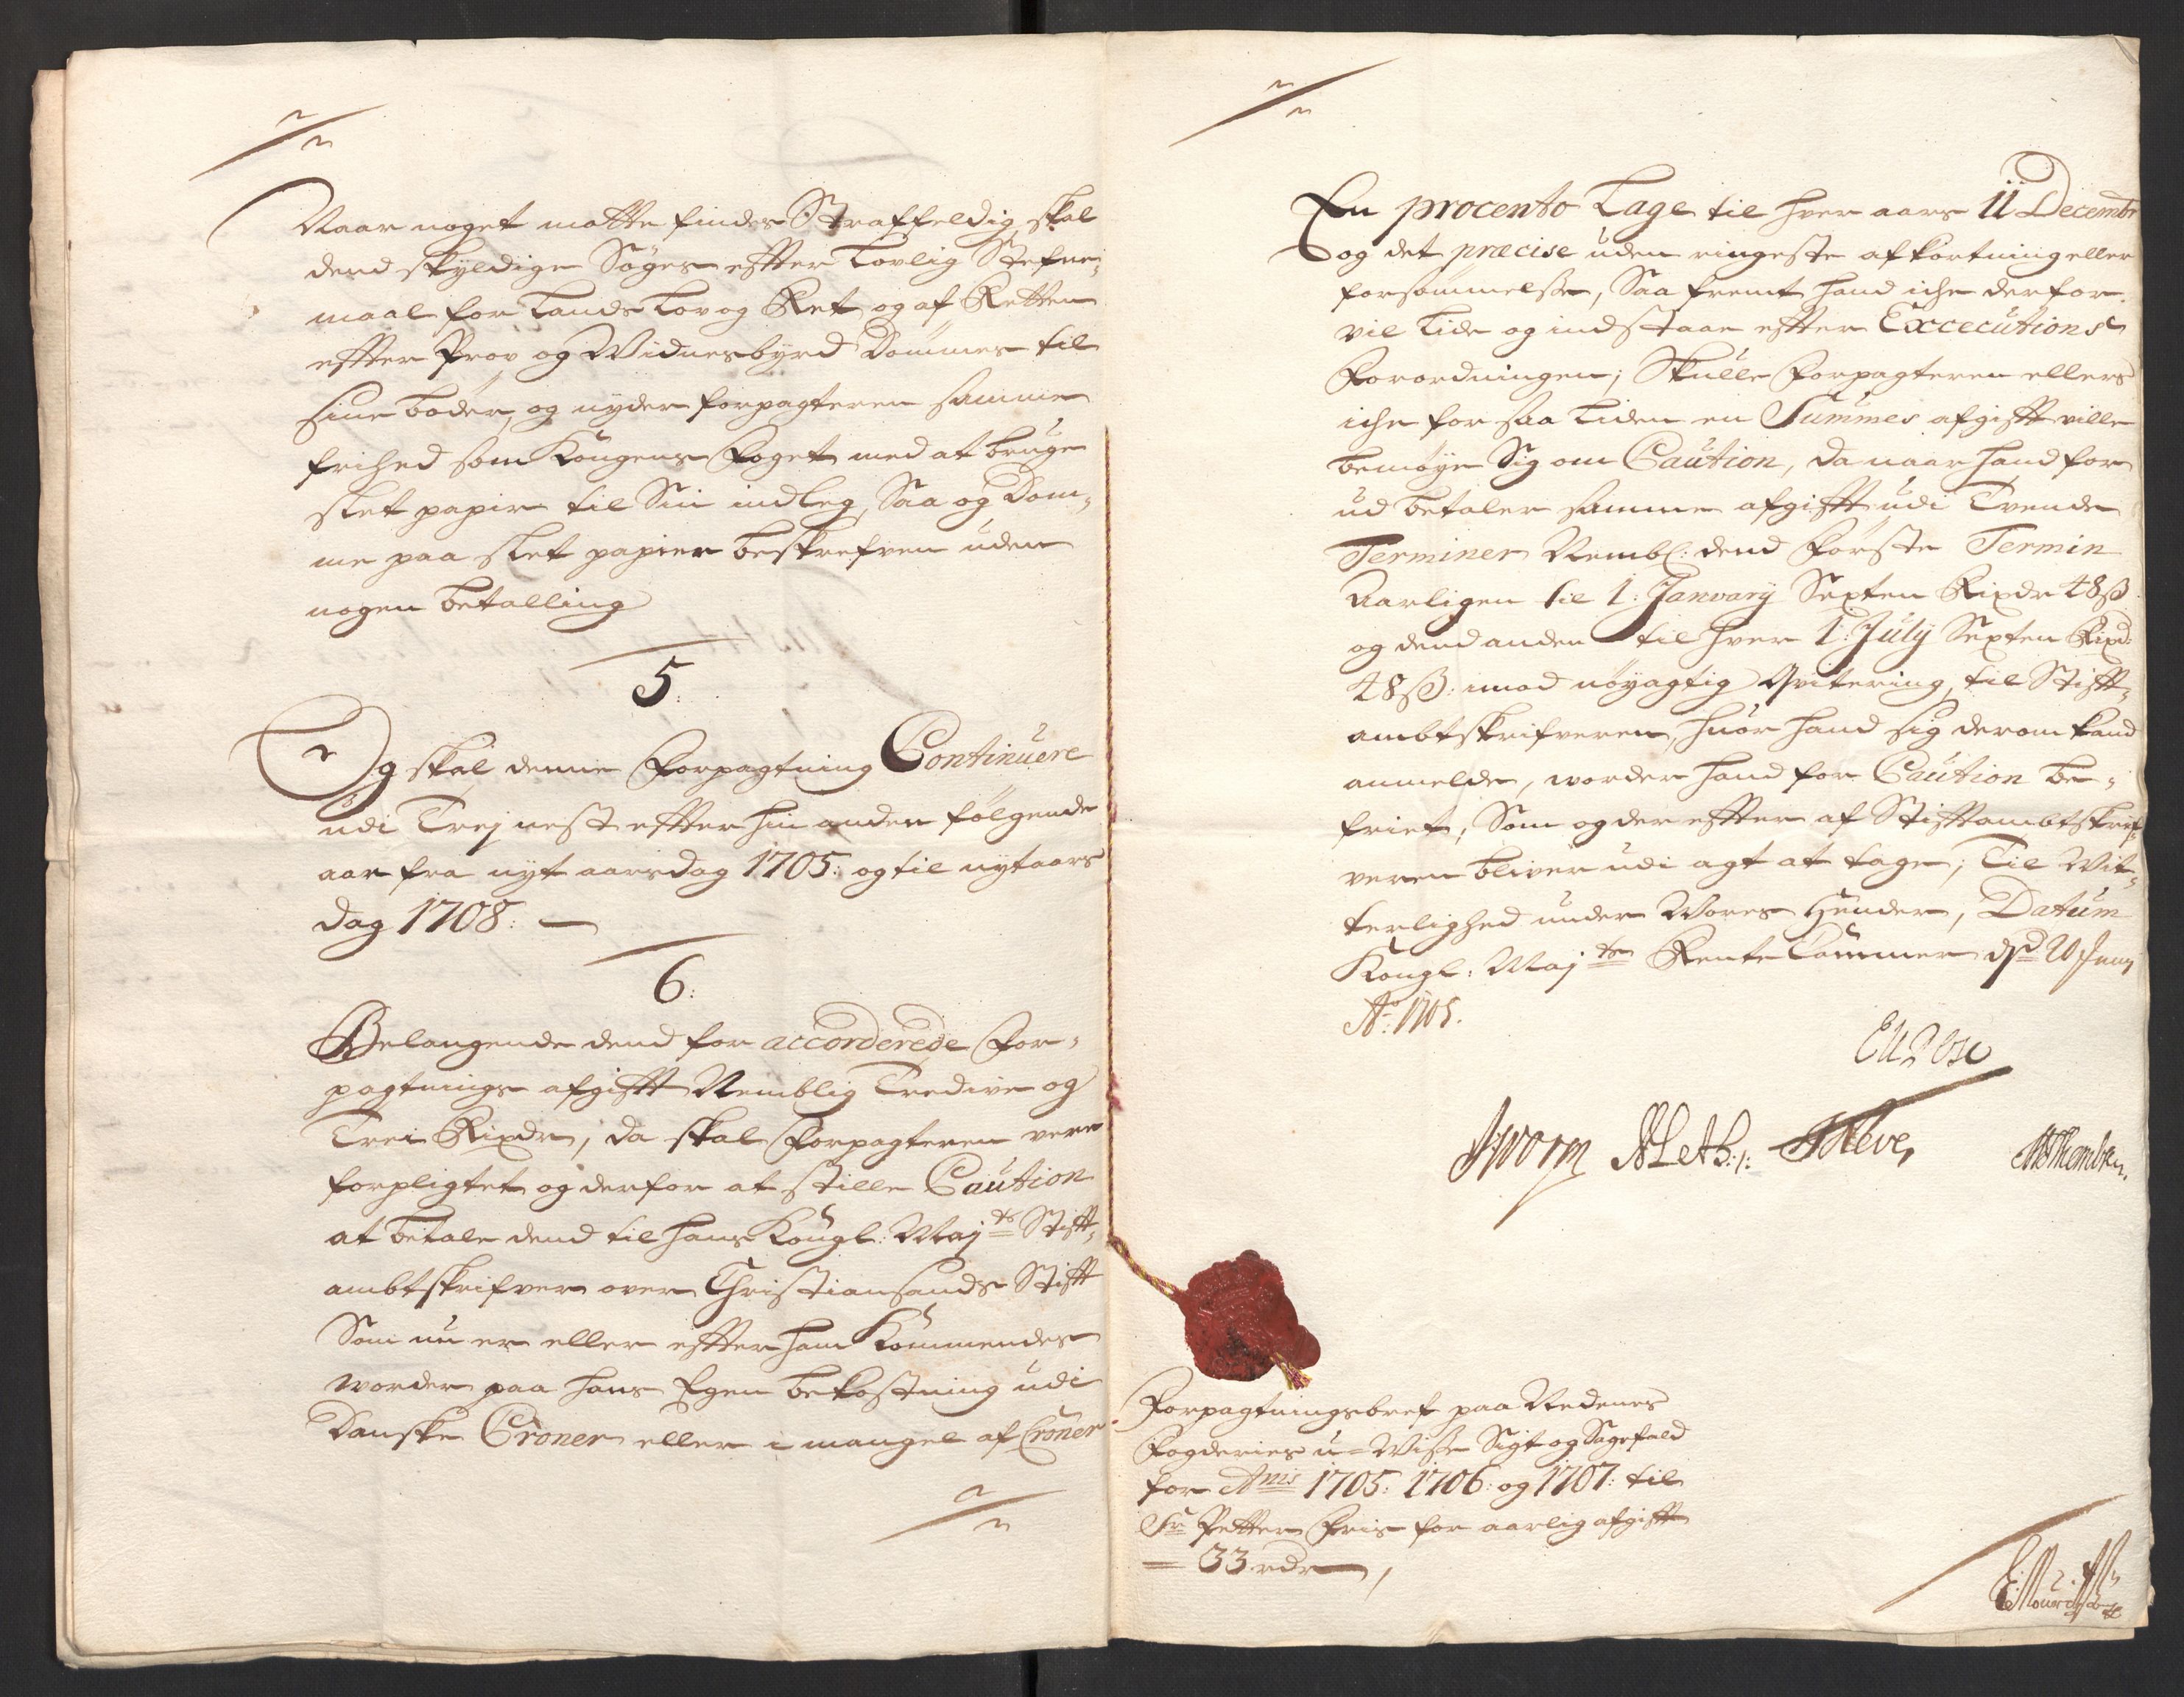 Naar noget motte findes Straffeldig, skal
dend skyldige Søges effter Lovlig Stefne-
maal for Lands Lov og Ret, og af Retten
effter Prov og Widnesbyrd Dømmes til
sine bøder, og nyder forpagteren samme
frihed som Kongens Foget med at bruge
slet papir til Sin indleg, Saa og Dom-
me paa slet papier beskrefven uden
nogen betalling
5:
Og skal denne Forpagtning Continuere
udi Trej nest effter hin anden følgende
aar fra nyt aarsdag 1705: og til nytaars
dag 1708:
6:
Belangende dend for accorderede For-
pagtnings afgifft Nemblig Tredive og
Trei Rixdr, da skal Forpagteren vere
forpligtet og derfor at stille Caution
at betale dend til hans Kongl: Maj:ts Stifft-
ambtskrifver over Christiansands Stifft
Som nu er eller effter ham Kommendes
worder paa hans Egen bekostning udi
Danske Croner eller i mangel af Croner
En procento Lage til hver aars 11 Decembr
og det præcise uden ringeste afkortning eller
forsømmelse, Saa fremt hand iche derfor
vil Lide og indstaae effter Excecutions
Forordningen; Skulle Forpagteren ellers
iche for saa Liden en Summes afgifft ville
bemøye Sig om Caution, da naar hand for
ud betaler samme afgifft udi Tvende
Terminer Nembl: dend Første Termin
Aarligen til 1: January Sexten Rixdr 48 ß
og dend anden til hver 1: July Sexten Rixd:
48 ß: imod nøyagtig Qvitering, til Stifft-
ambtskrifveren, huor hand sig derom kand
anmelde, worder hand for Caution be-
friet, Som og der effter af Stifftambtskrif-
veren bliver udi agt at tage; Til Wit-
terlighed under Wores Hender, Datum
Kongl: Maj:ts Rente Cammer d. 20 Juny
Ao 1705.
JWorm
Forpagtningsbref paa Nedenes
Fogderies u-Wisse Sigt og Sagefald
for Anis 1705: 1706: og 1707: til
Sr Petter Friis for aarlig afgifft
= 33 rdr